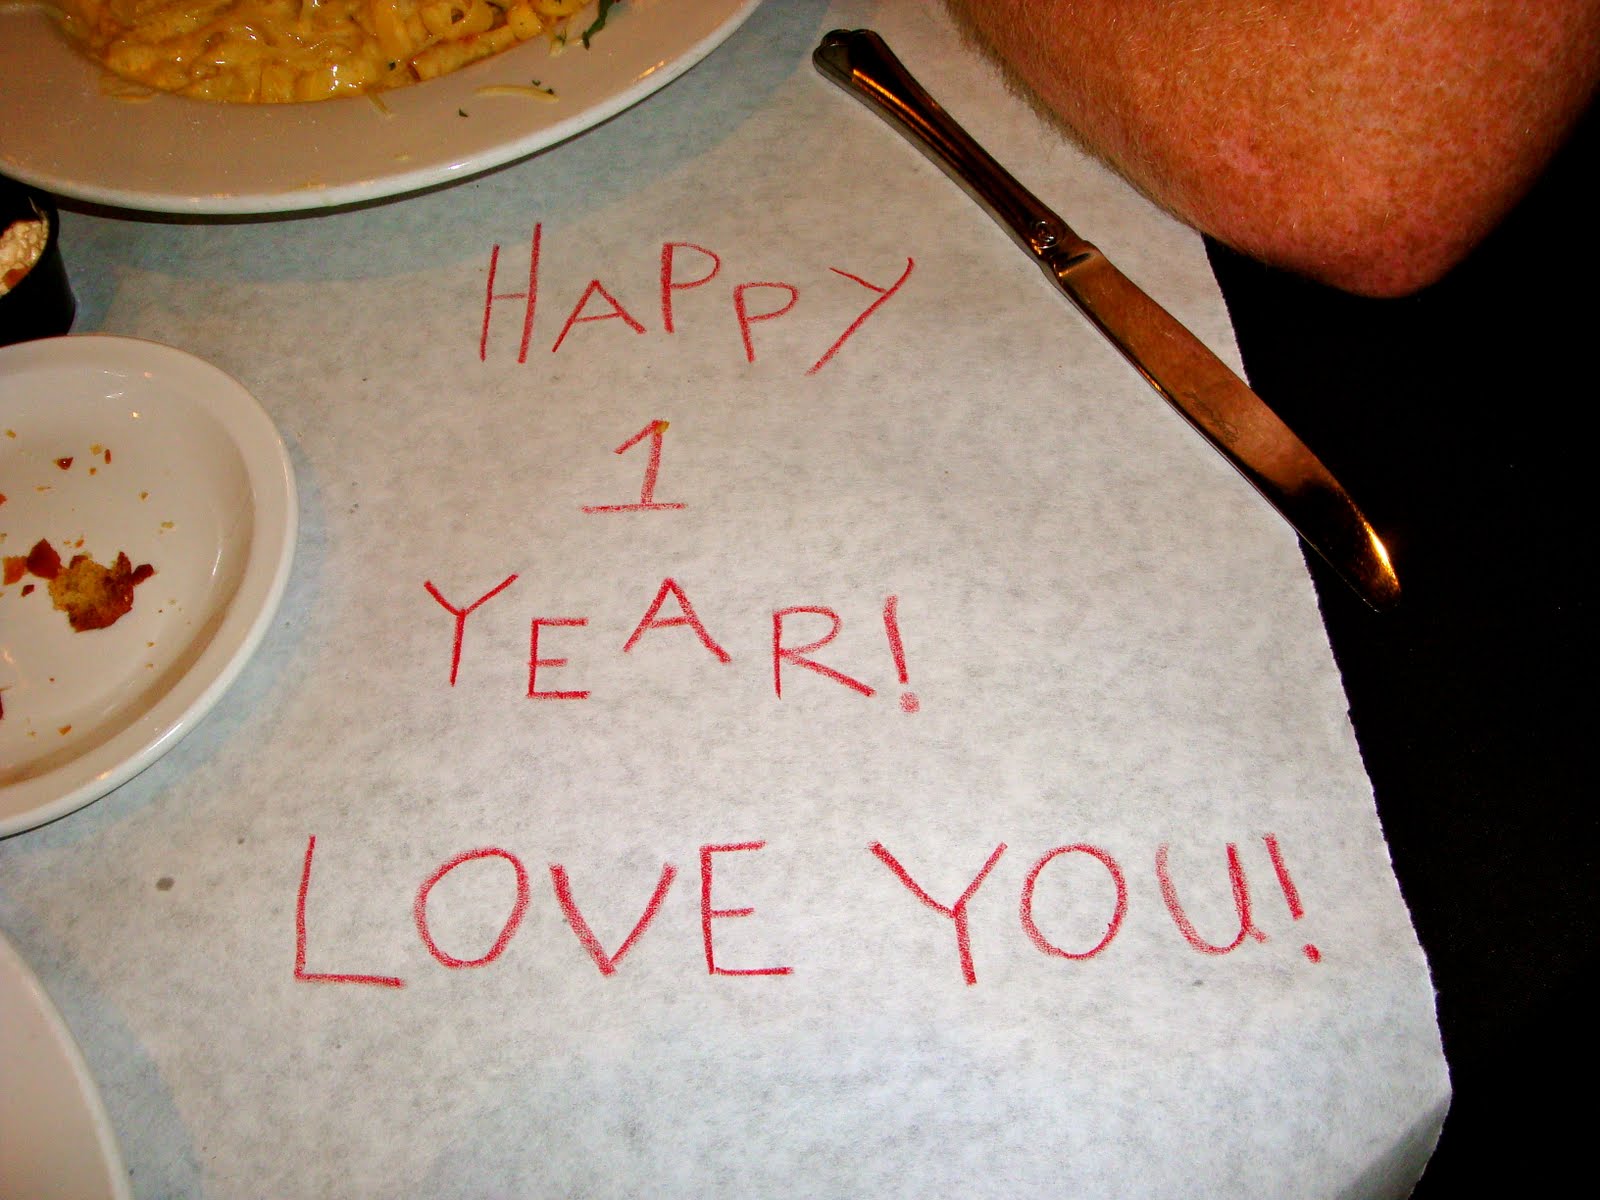 HAPPY
1
YEAR!
LOVE YOU!